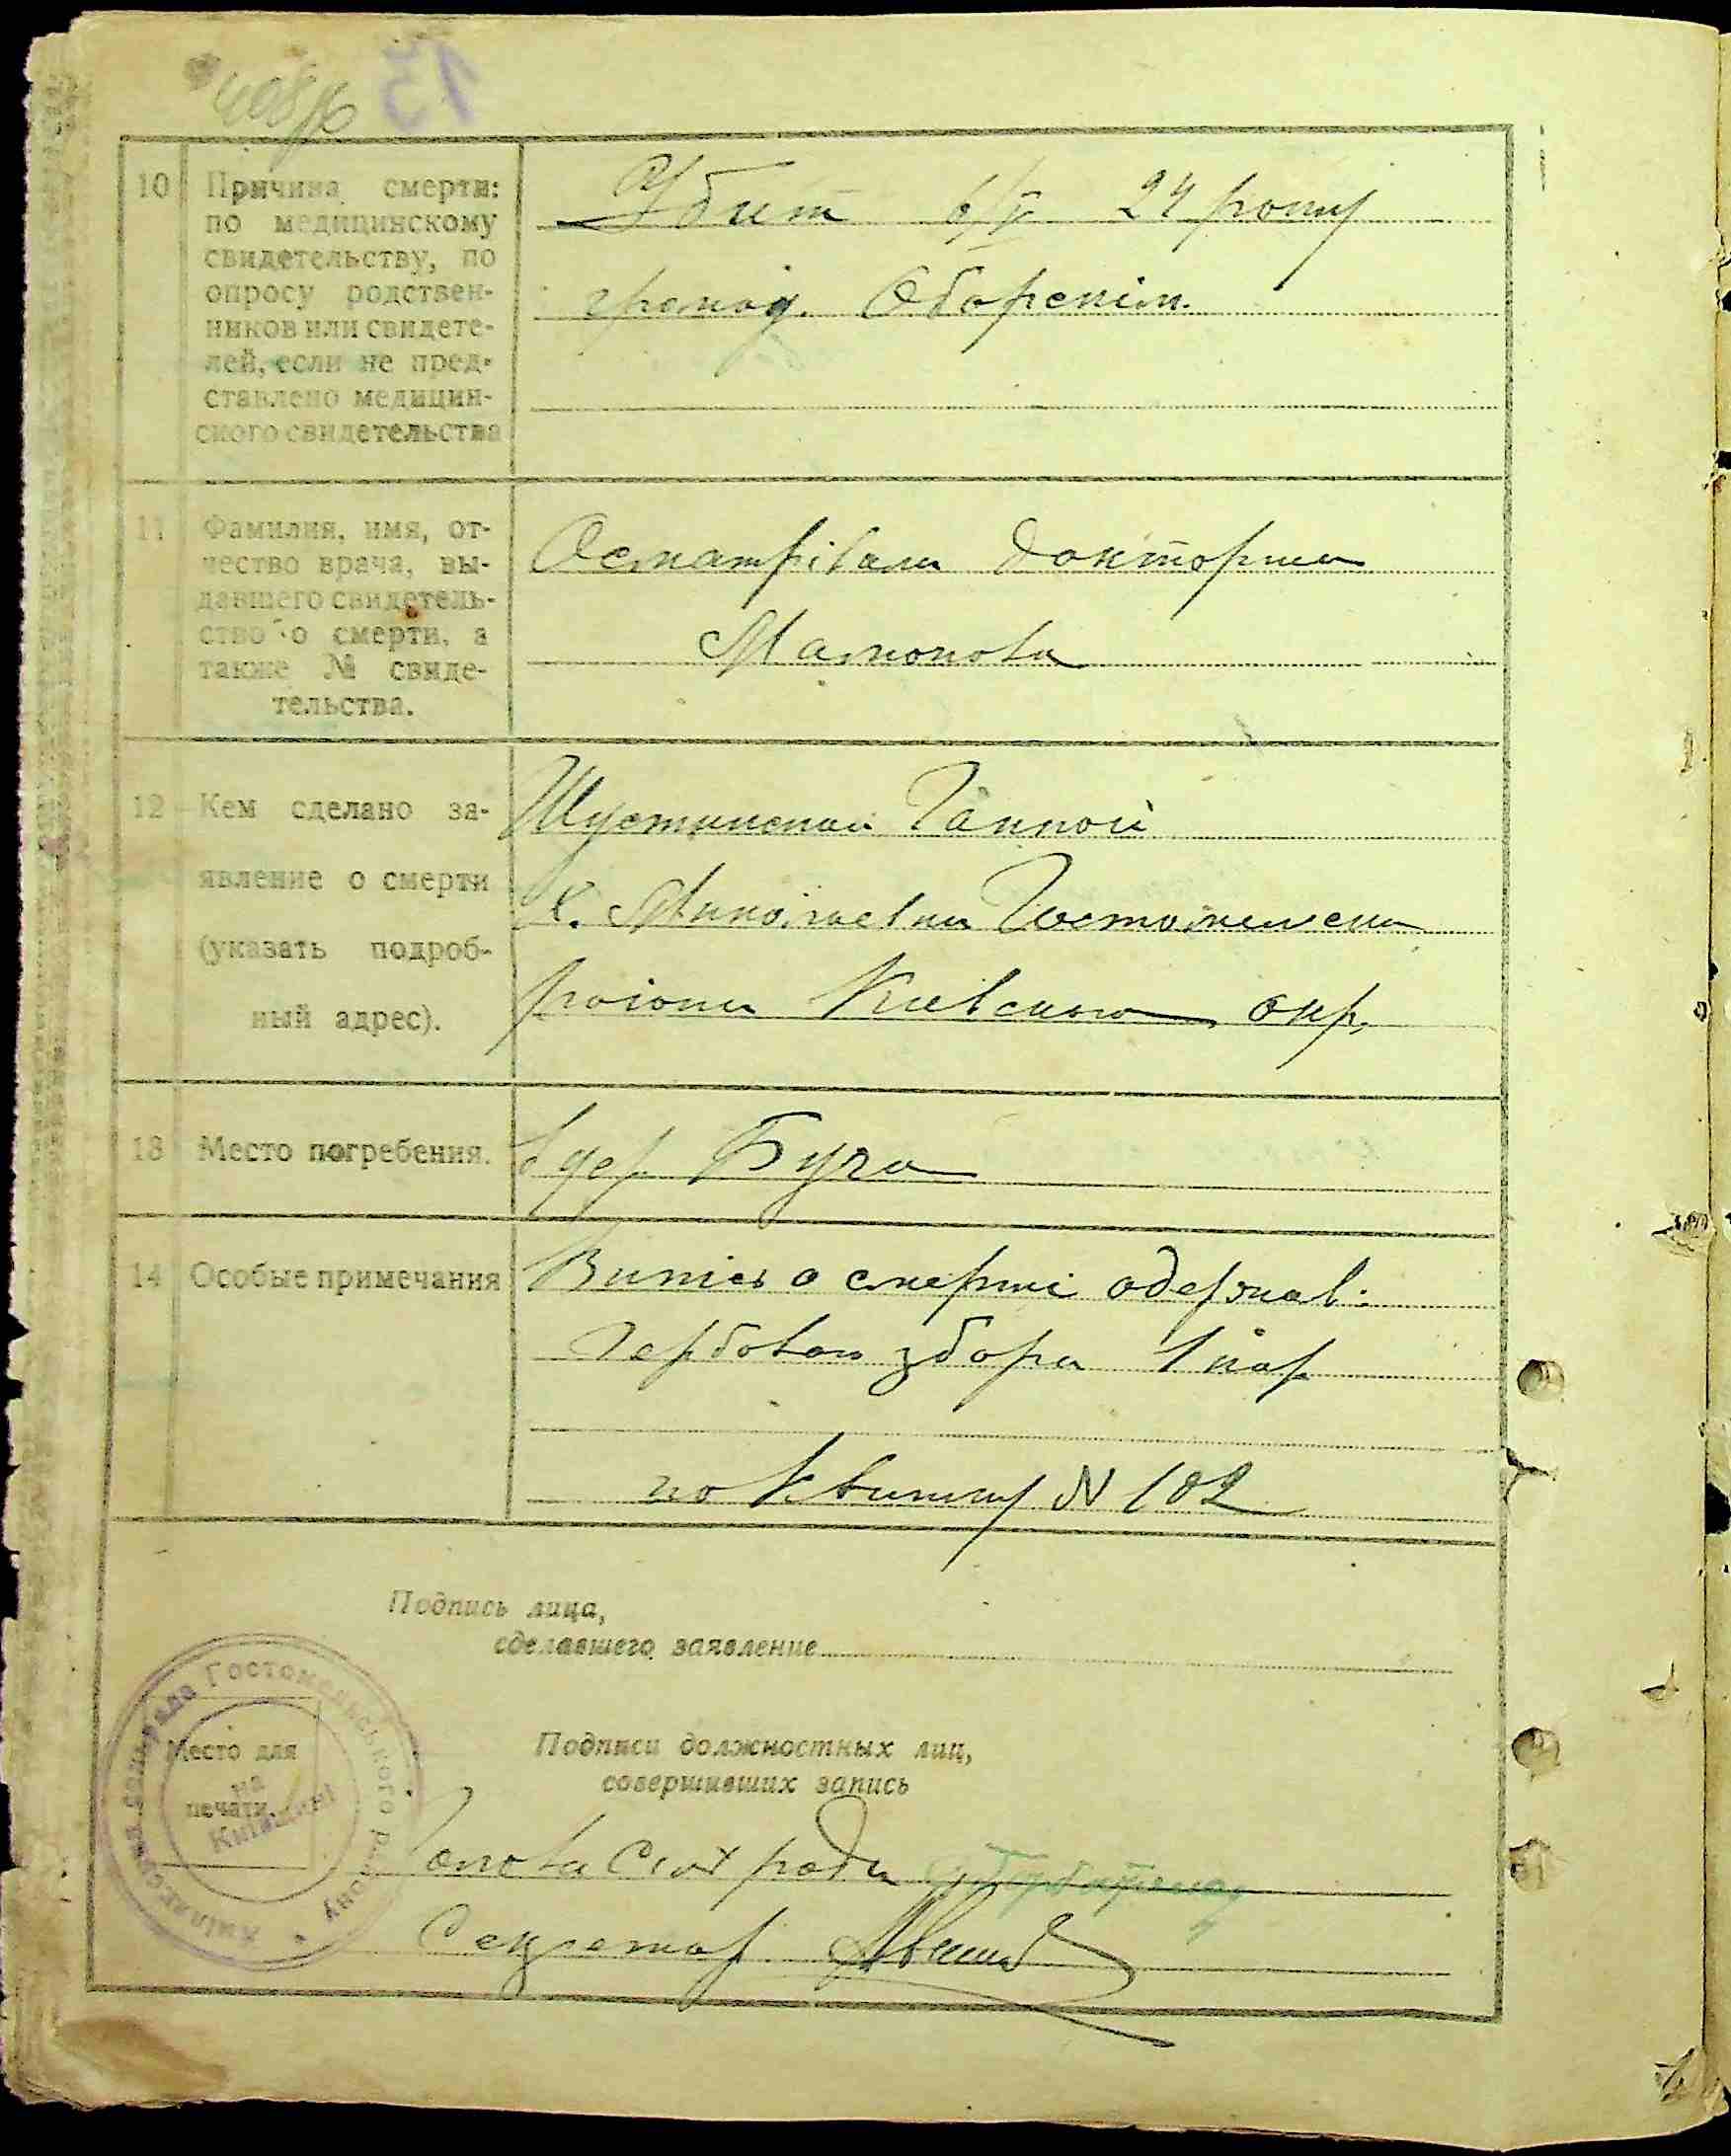 10 Причина смерти:
по медицинскому
свидетельству, по
опросу родствен-
ников или свидете-
лей, если не пред-
ставлено медицин-
ского свидетельства
Убит 6/V 24 року
громод.
11 Фамилия, имя, от-
чество врача, вы-
давшего свидетель-
ство о смерти, а
также № свиде-
тельства.
Осматрівала докторша
Мамонова
12 Кем сделано за-
явление о смерти
(указать подроб-
ный адрес).
Шустинской Ганной
х. Гостомельск
района Киевского окр.
13 Место погребения.
в дер Буча
14 Особые примечания
Випісь о смерті одержав.
Гербового збора 1 кар
по Квитку N 102
Подпись лица,
сделавшего заявление
Место для
печати.
Гостомельського району
на
Київщині
Подписи должностных лиц,
совершивших запись
Голова Сіл ради
Секретар